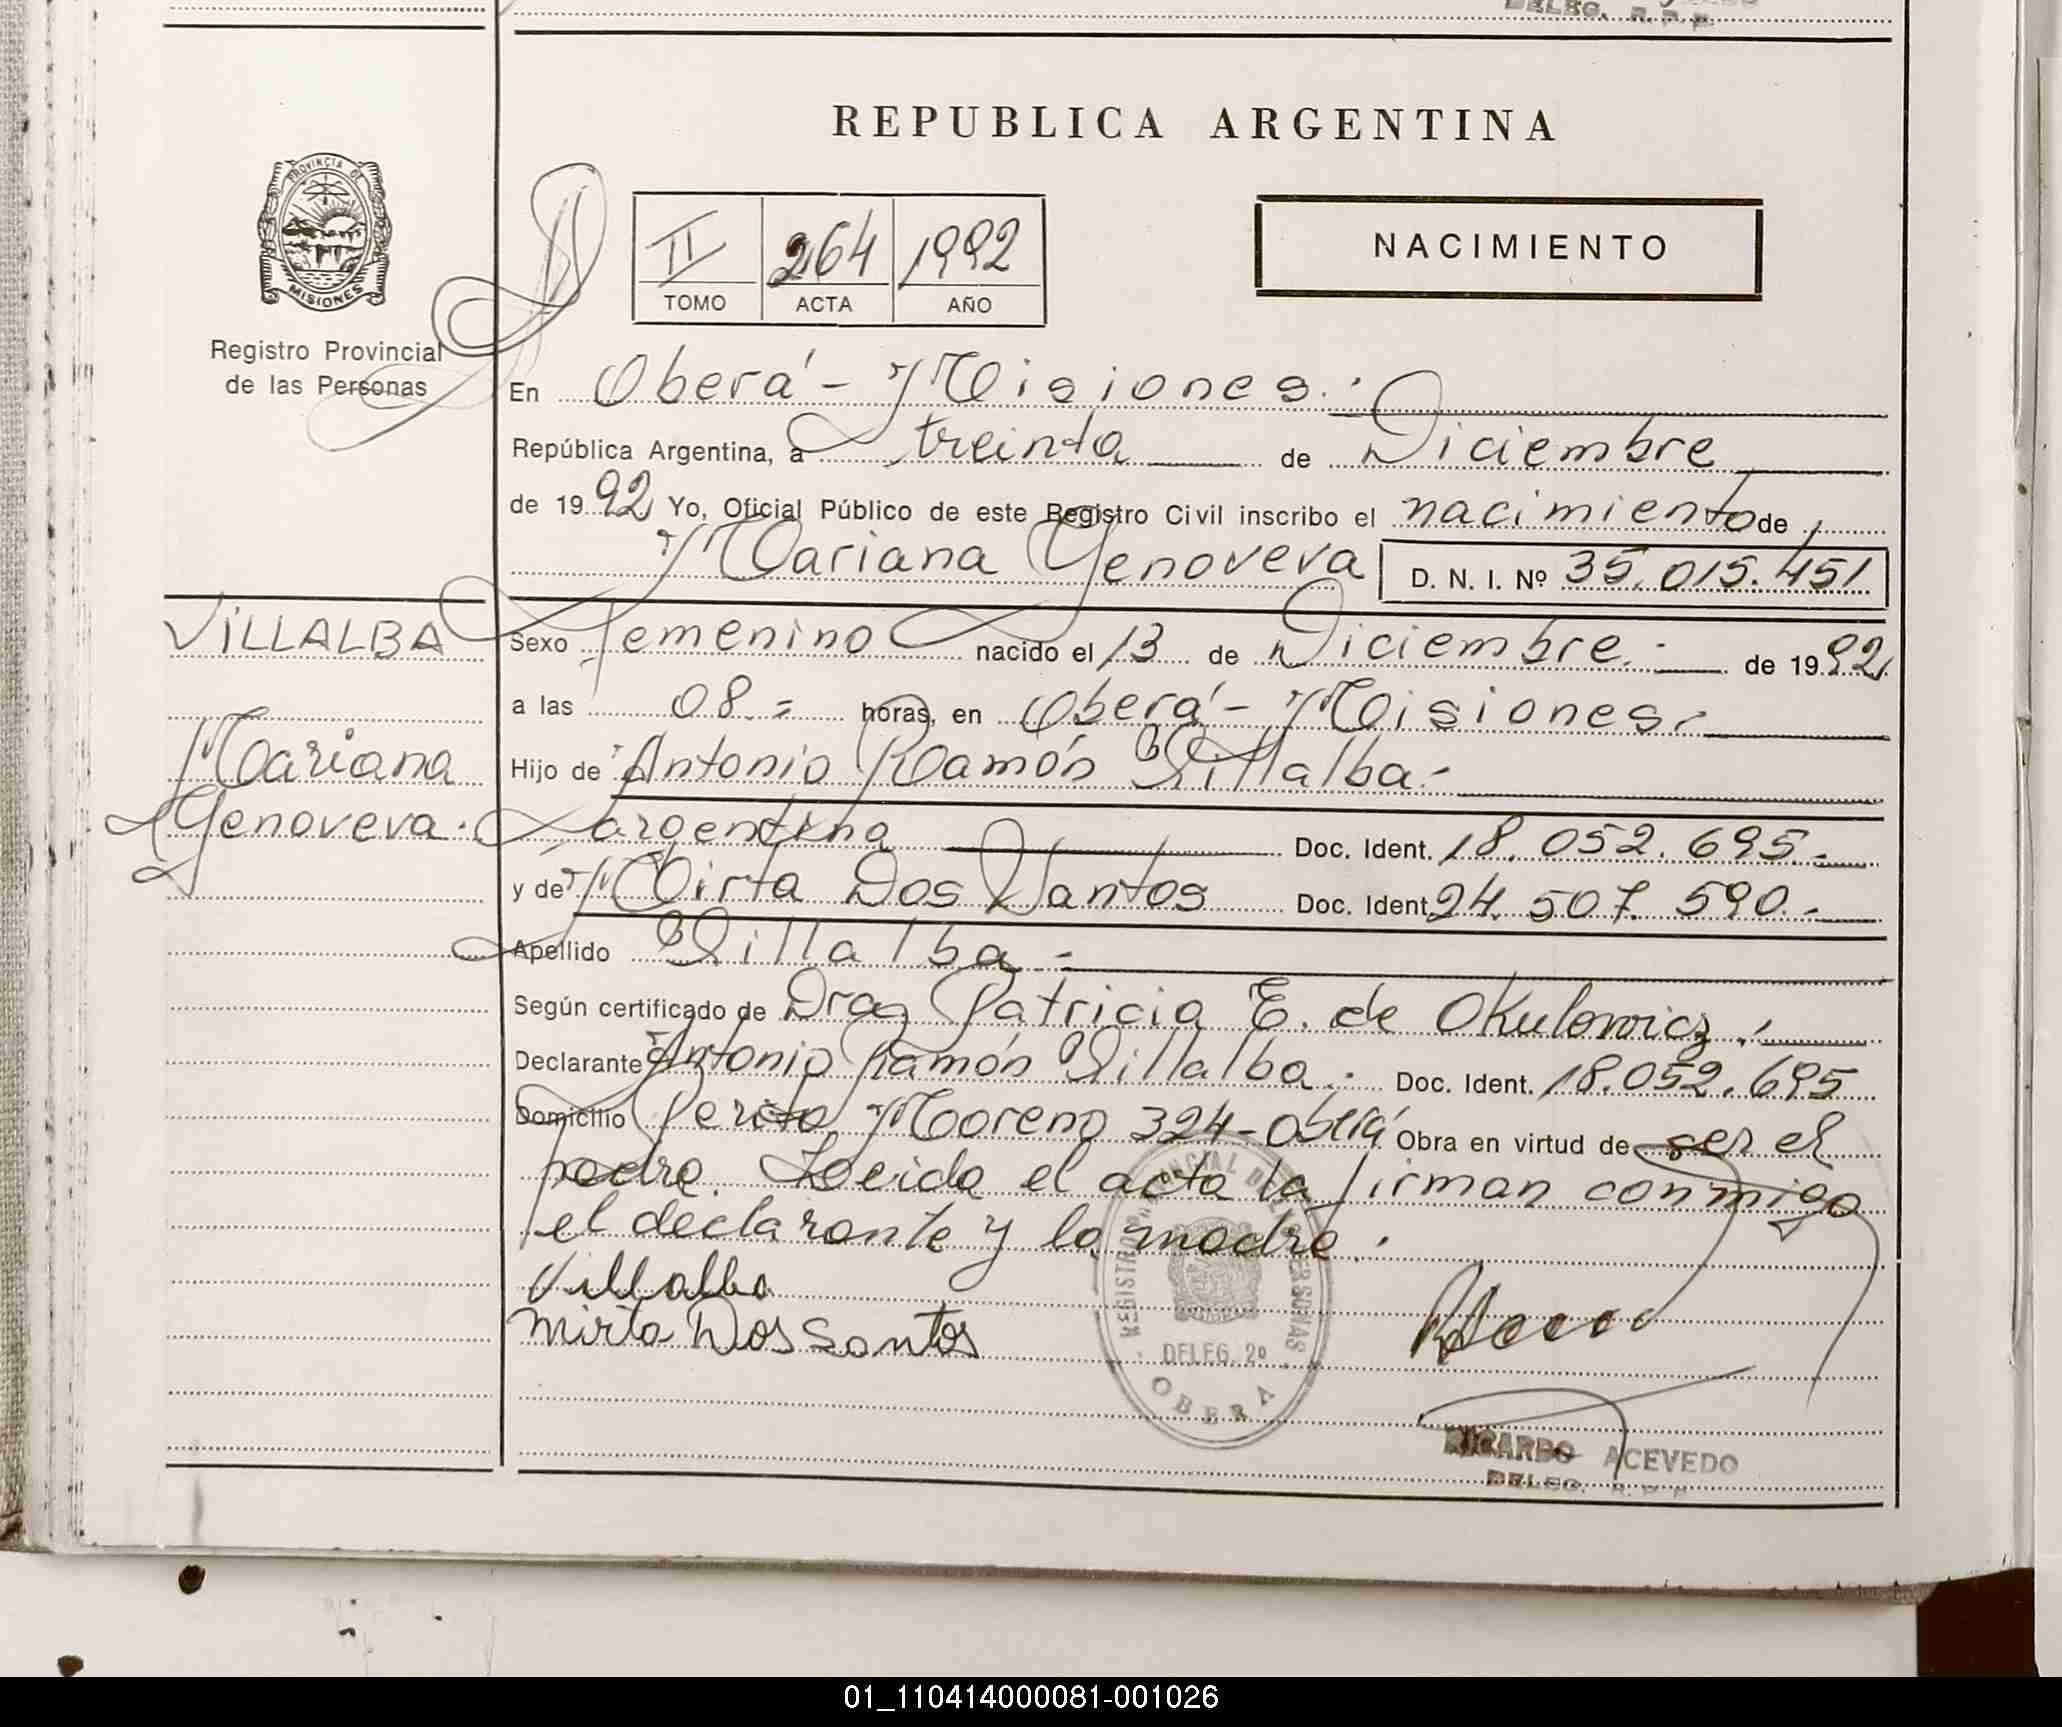 DELEG. R. P. P.
REPUBLICA ARGENTINA
PROVINCIA DE
MISIONES
Registro Provincial
de las Personas
II 264 1992
TOMO ACTA AÑO
NACIMIENTO
En Oberá - Misiones.
República Argentina, a treinta de Diciembre
de 1992 Yo, Oficial Público de este Registro Civil inscribo el nacimiento de
Mariana Genoveva D. N. I. Nº 35.015.451
VILLALBA
Mariana
Genoveva.
Sexo femenino nacido el 13 de Diciembre.- de 1992
a las 08.= horas, en Oberá - Misiones.
Hijo de Antonio Ramón Villalba.-
argentina Doc. Ident. 18.052.695.-
y de Mirta Dos Santos Doc. Ident. 24.507.590.-
Apellido Villalba -
Según certificado de Dra Patricia E. de Okulowicz.
Declarante Antonio Ramón Villalba.- Doc. Ident. 18.052.695
Domicilio Perito Moreno 324 - Oberá Obra en virtud de ser el
padre. Leida el acta la firman conmigo
el declarante y la madre.
Villalba
Mirta Dos Santos
REGISTRO PROVINCIAL DE LAS PERSONAS
DELEG. 2º
OBERA
RICARDO ACEVEDO
DELEG. R. P. P.
01_110414000081-001026